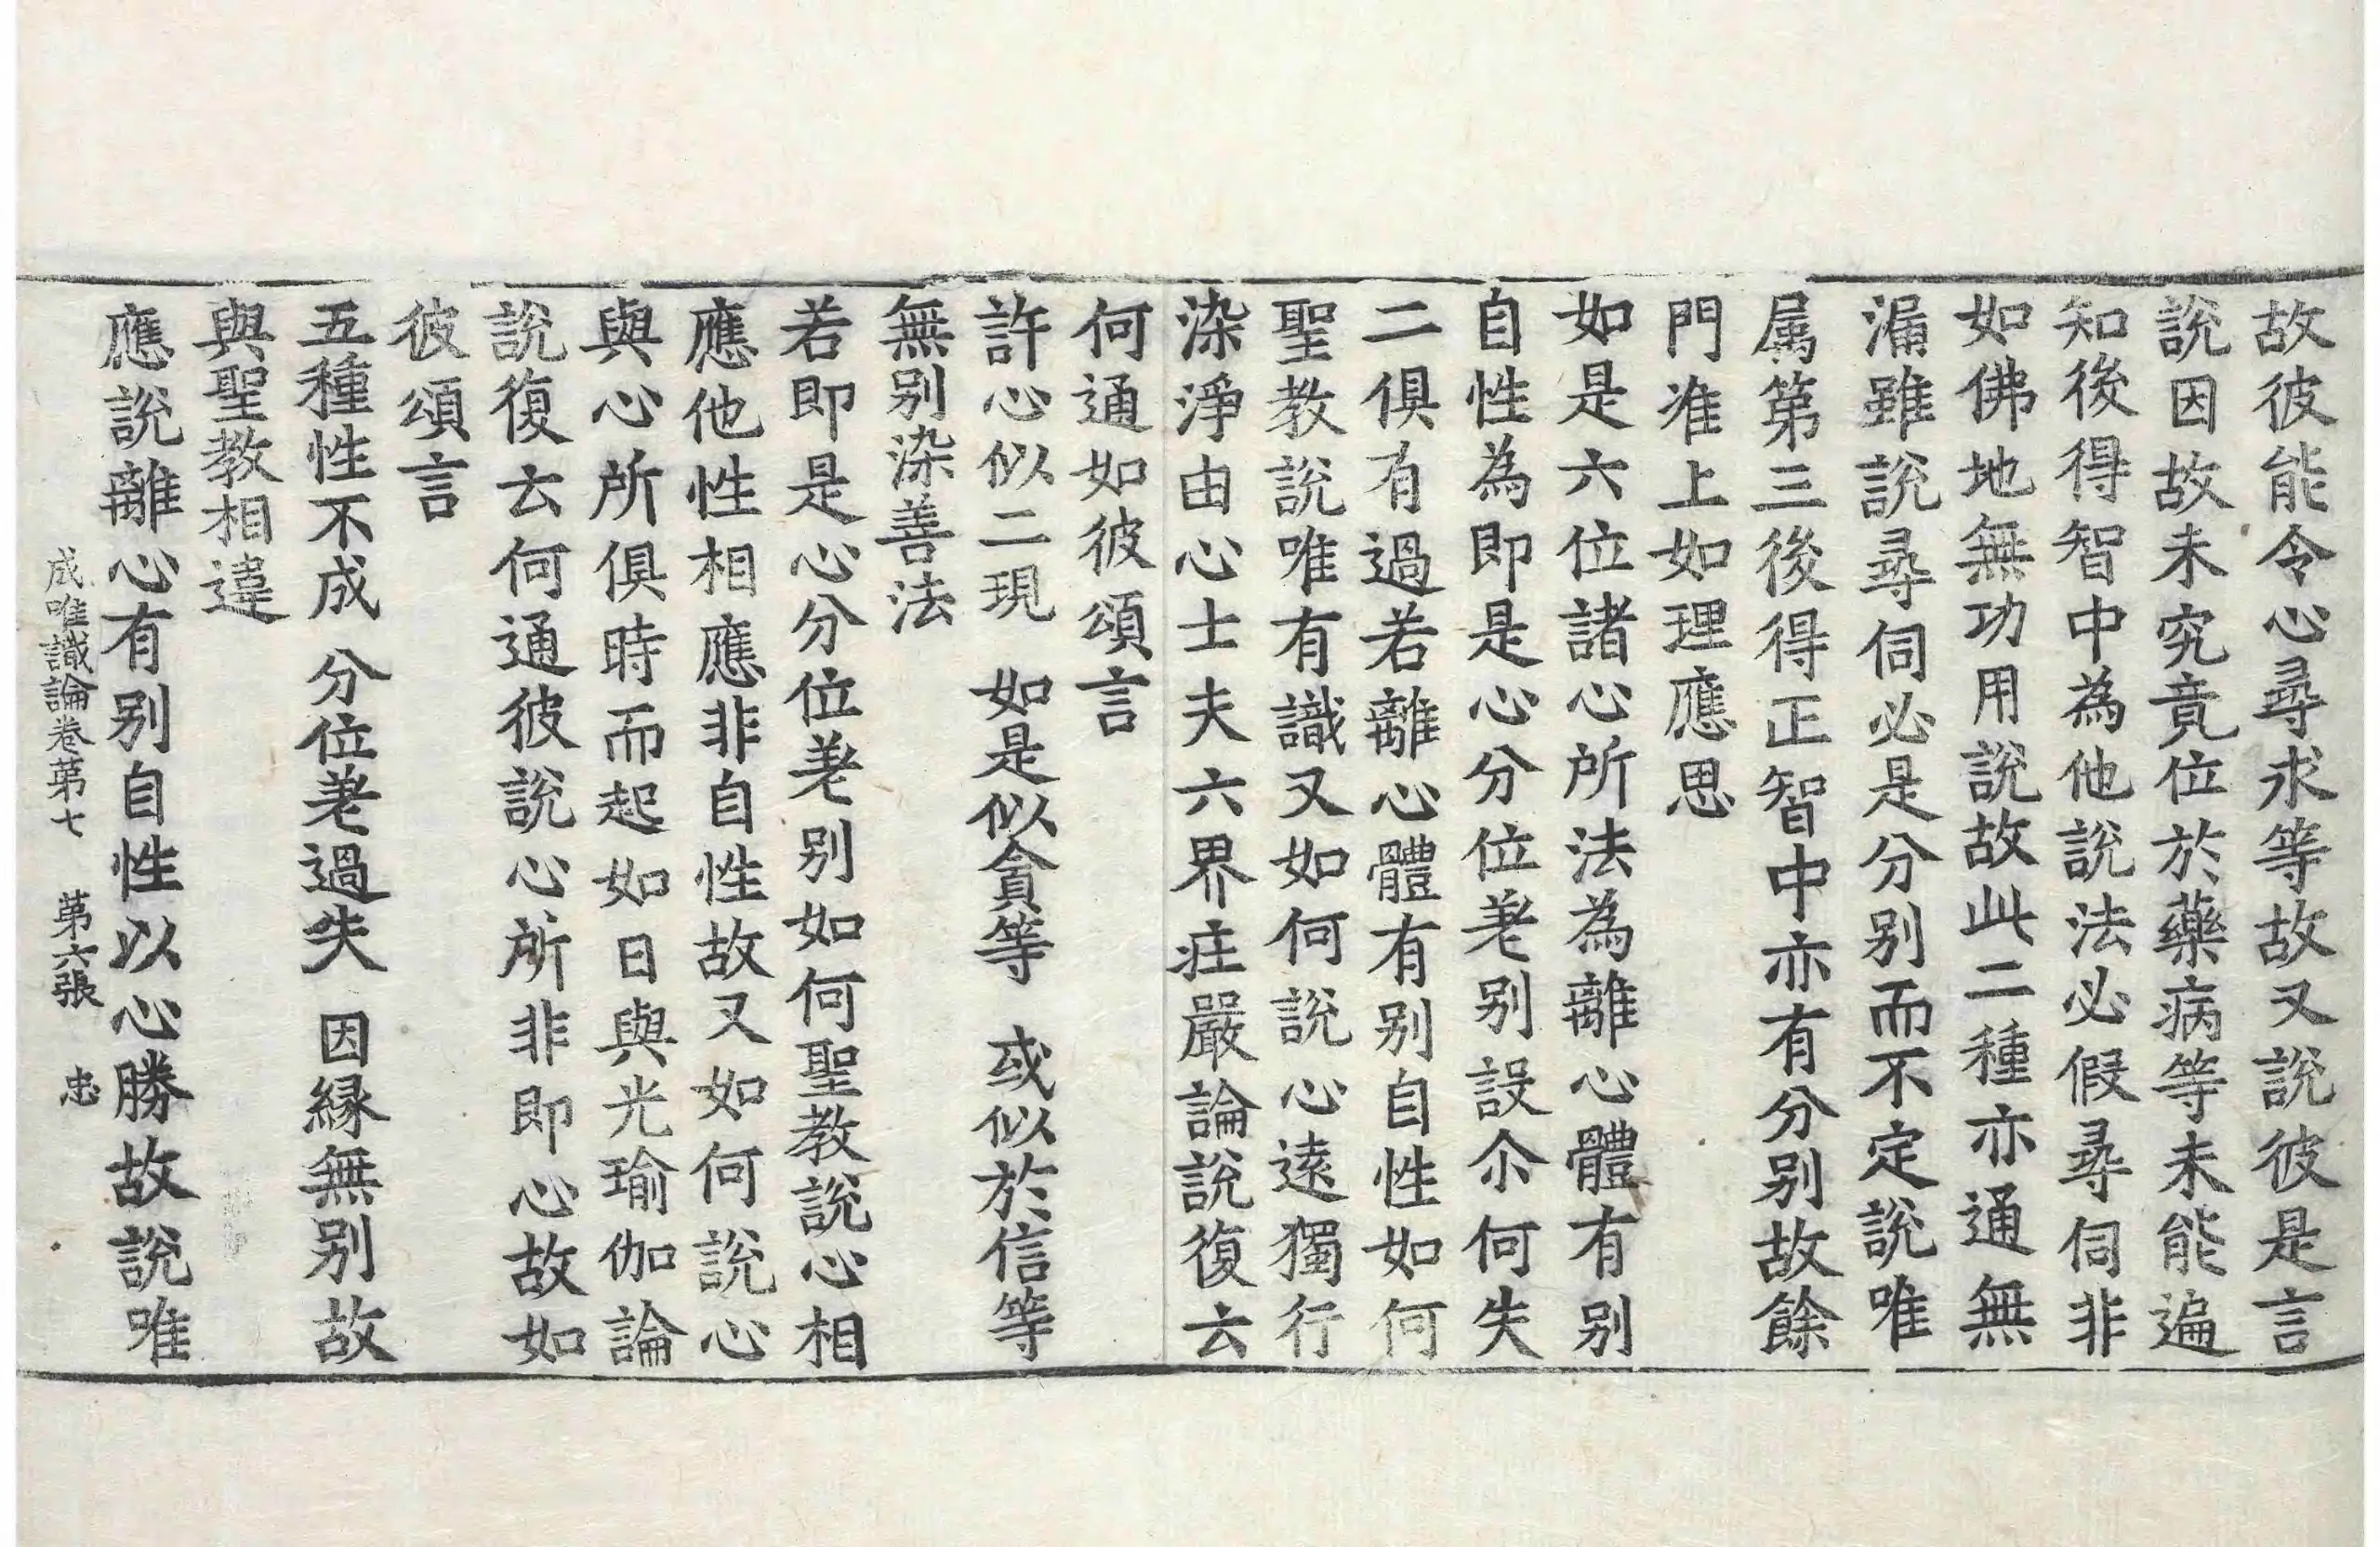 故彼能令心尋求等故又說彼是言
說因故未究竟位於藥病等未能遍
知後得智中為他說法必假尋伺非
如佛地無功用說故此二種亦通無
漏雖說尋伺必是分別而不定說唯
属第三後得正智中亦有分別故餘
門准上如理應思
如是六位諸心所法為離心體有別
自性為即是心分位差別設尒何失
二俱有過若離心體有別自性如何
聖教說唯有識又如何說心遠獨行
染淨由心士夫六界庄嚴論說復云
何通如彼頌言
許心似二現　如是似貪等　或似於信等
無別染善法
若即是心分位差別如何聖教說心相
應他性相應非自性故又如何說心
與心所俱時而起如日與光瑜伽論
說復云何通彼說心所非即心故如
彼頌言
五種性不成　分位差過失　因縁無別故
與聖教相違
應說離心有別自性以心勝故說唯
成唯識論卷第七　第六張　忠